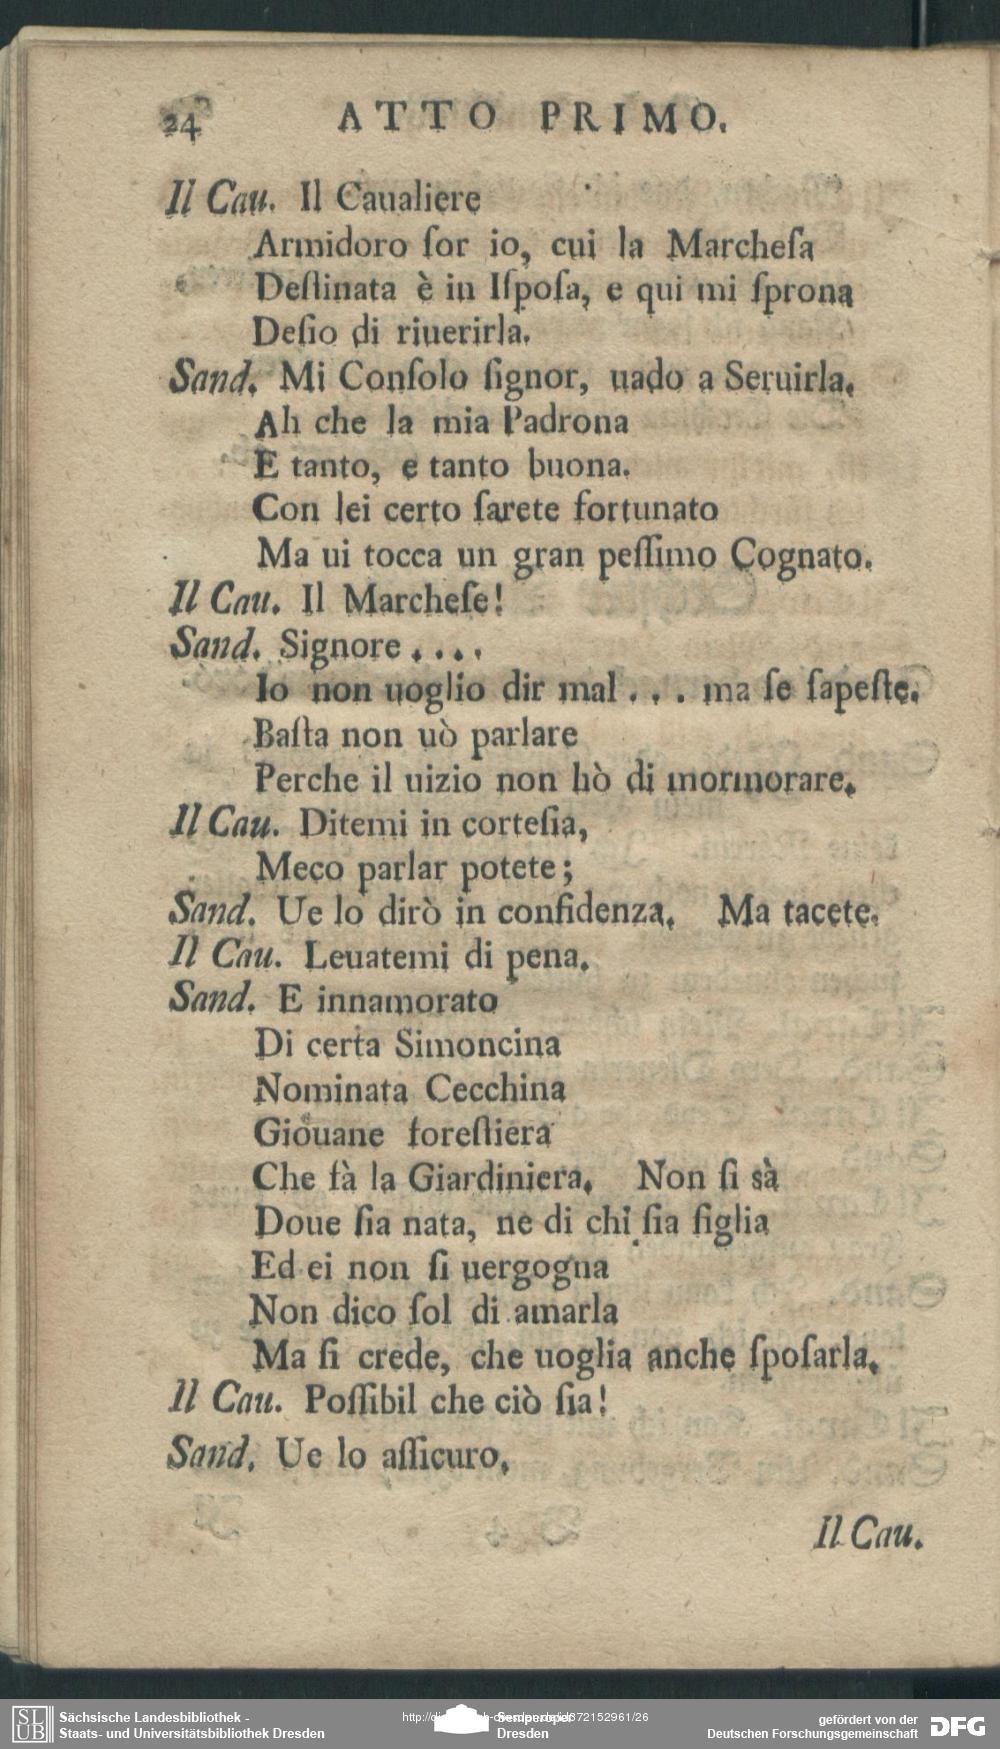 24 ATTO PRIMO.
Il Cau. Il Caualiere
Armidoro ſor io, cui la Marcheſa
Deſtinata è in Iſpoſa, e qui mi ſprona
Deſio di riuerirla.
Sand. Mi Conſolo ſignor, uado a Seruirla.
Ah che la mia Padrona
E tanto, e tanto buona.
Con lei certo ſarete fortunato
Ma ui tocca un gran peſſimo Cognato.
Il Cau. Il Marcheſe!
Sand. Signore . . . .
Io non uoglio dir mal . . . ma ſe ſapeſte.
Baſta non uò parlare
Perche il uizio non hò di mormorare.
Il Cau. Ditemi in corteſia,
Meco parlar potete;
Sand. Ue lo dirò in confidenza. Ma tacete.
Il Cau. Leuatemi di pena.
Sand. E innamorato
Di certa Simoncina
Nominata Cecchina
Giouane foreſtiera
Che fà la Giardiniera. Non ſi sà
Doue ſia nata, ne di chi ſia figlia
Ed ei non ſi uergogna
Non dico ſol di amarla
Ma ſi crede, che uoglia anche ſpoſarla.
Il Cau. Poſſibil che ciò ſia!
Sand. Ue lo aſſicuro.
Il Cau.
SLUB
Sächsische Landesbibliothek -
Staats- und Universitätsbibliothek Dresden
Semperoper
Dresden
gefördert von der
Deutschen Forschungsgemeinschaft
DFG